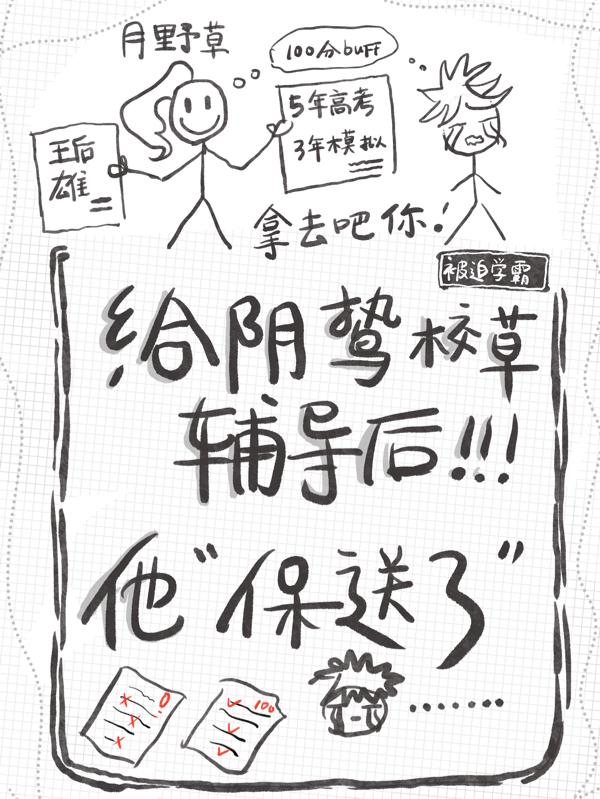 月野草
100分buff
5年高考
3年模拟
王后
雄
拿去吧你!
被迫学霸
给阴鸷校草
辅导后!!!
他“保送了”
0
100
.......